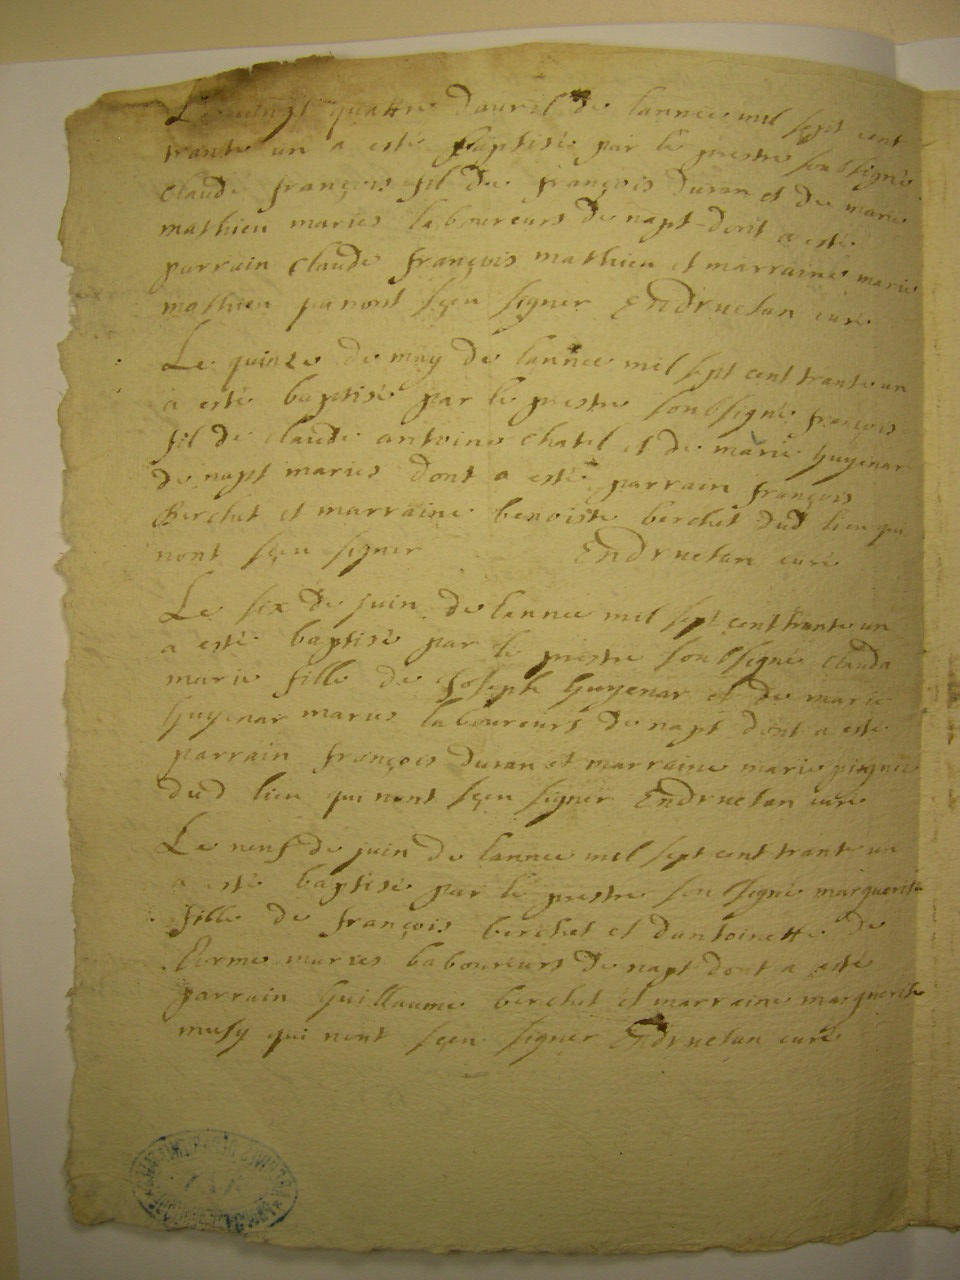 Le vingt quattre d'auril de lannee mil sept cent
trante un a esté baptisé par le prestre soubsigné
claude françois fil de françois duran et de marie
mathieu mariés laboureurs de napt dont a esté
parrain claude françois mathieu et marraine marie
mathieu qui nont sçeu signer Endruetan curé
Le quinze de may de lannee mil sept cent trante un
a esté baptisé par le prestre soubsigné françois
fil de claude antoine chatel et de marie guyenar
de napt mariés dont a esté parrain françois
Berchet et marraine benoiste berchet dud lieu qui
nont sçeu signer Endruetan curé
Le six de juin de lannee mil sept cent trante un
a esté baptisé par le prestre soubsigné clauda
marie fille de Joseph Guyenar et de marie
Guyenar mariés laboureurs de napt dont a esté
parrain françois duran et marraine marie
dud lieu qui nont sçeu signer Endruetan curé
Le neuf de juin de lannee mil sept cent trante un
a esté baptisé par le prestre soubsigné marguerite
fille de françois berchet et dantoinette de
mariés laboureurs de napt dont a esté
parrain Guillaume berchet et marraine marguerite
musy qui nont sçeu signer Endruetan curé